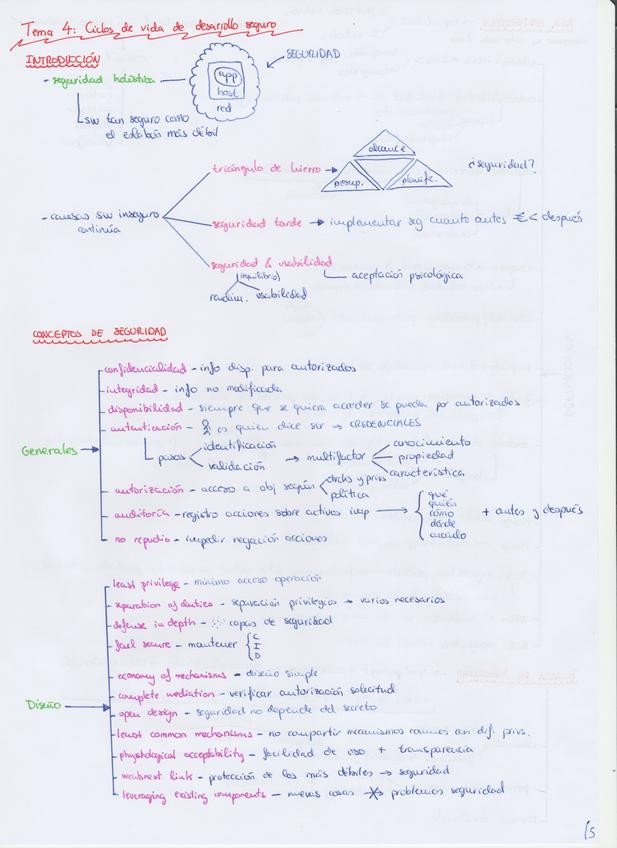 Tema 4: Ciclos de vida de desarrollo seguro
INTRODUCCIÓN
SEGURIDAD
- seguridad holística
app
host
red
sw tan seguro como
el eslabón más débil
triángulo de hierro
alcance
presup.
planific.
¿seguridad?
- causas sw inseguro
continúa
seguridad tarde → implementar seg cuanto antes € < después
seguridad & usabilidad
(equilibrio)
aceptación psicológica
rendim. usabilidad
CONCEPTOS DE SEGURIDAD
Generales
confidencialidad - info disp. para autorizados
integridad - info no modificada
disponibilidad - siempre que se quiera acceder se pueda por autorizados
autenticación - es quien dice ser → CREDENCIALES
pasos
identificación
validación
→ multifactor
conocimiento
propiedad
característica
autorización - acceso a obj según
drchs y privs
política
auditoría - registro acciones sobre activos imp →
qué
quién
cómo
dónde
cuándo
+ antes y después
no repudio - impedir negación acciones
Diseño
least privilege - mínimo acceso operación
separation of duties - separación privilegios → varios necesarios
defense in depth - capas de seguridad
fail secure - mantener
C
I
D
economy of mechanisms - diseño simple
complete mediation - verificar autorización solicitud
open design - seguridad no depende del secreto
least common mechanisms - no compartir mecanismos comunes con dif. privs.
physchological acceptability - facilidad de uso + transparencia
weakest link - protección de los más débiles → seguridad
leveraging existing components - nuevas cosas → problemas seguridad
/5